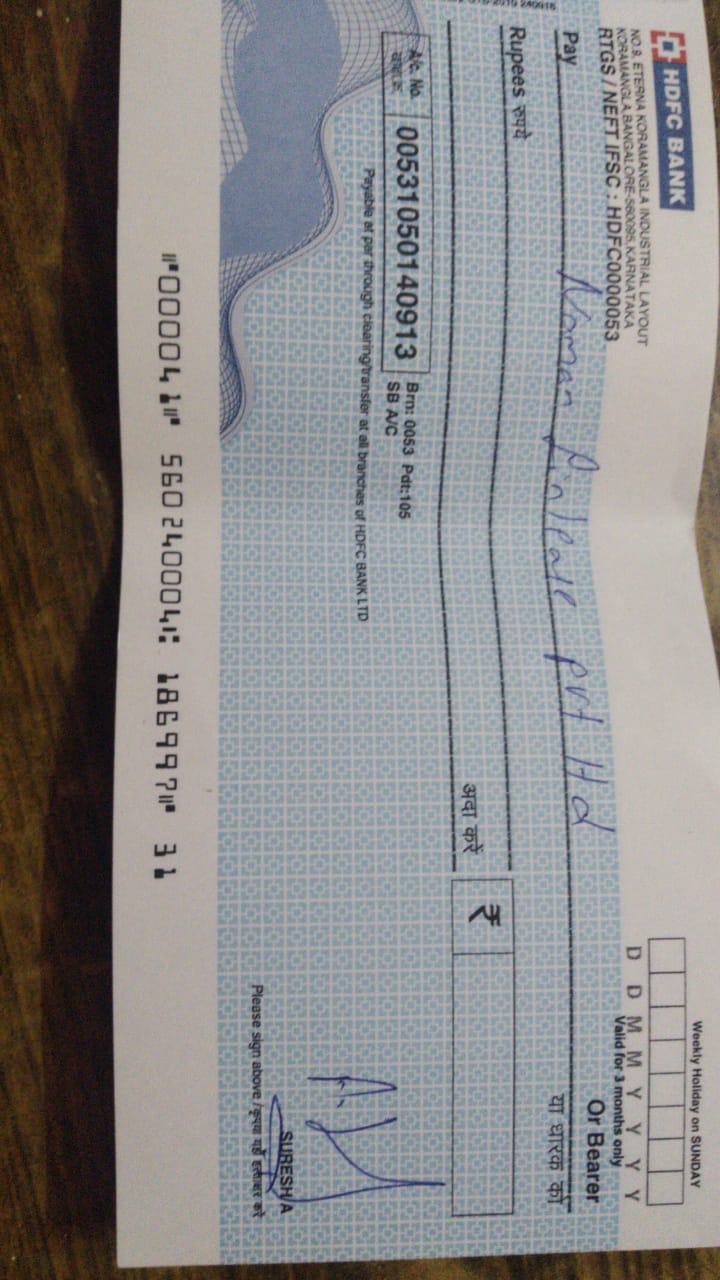 HDFC BANK
NO.9, ETERNA KORAMANGLA INDUSTRIAL LAYOUT
KORAMANGLA,BANGALORE-560095,KARNATAKA
RTGS / NEFT IFSC : HDFC0000053
Weekly Holiday on SUNDAY
D D M M Y Y Y Y
Valid for 3 months only
Pay Naman pvt ltd Or Bearer
या धारक को
Rupees रुपये
अदा करें ₹
A/c. No. 00531050140913 Brn: 0053 Pdt:105
SB A/C
Payable at par through clearing/transfer at all branches of HDFC BANK LTD
SURESH A
Please sign above / कृपया यहाँ हस्ताक्षर करें
⑈000041⑈ 560240004⑆ 186997⑈ 31